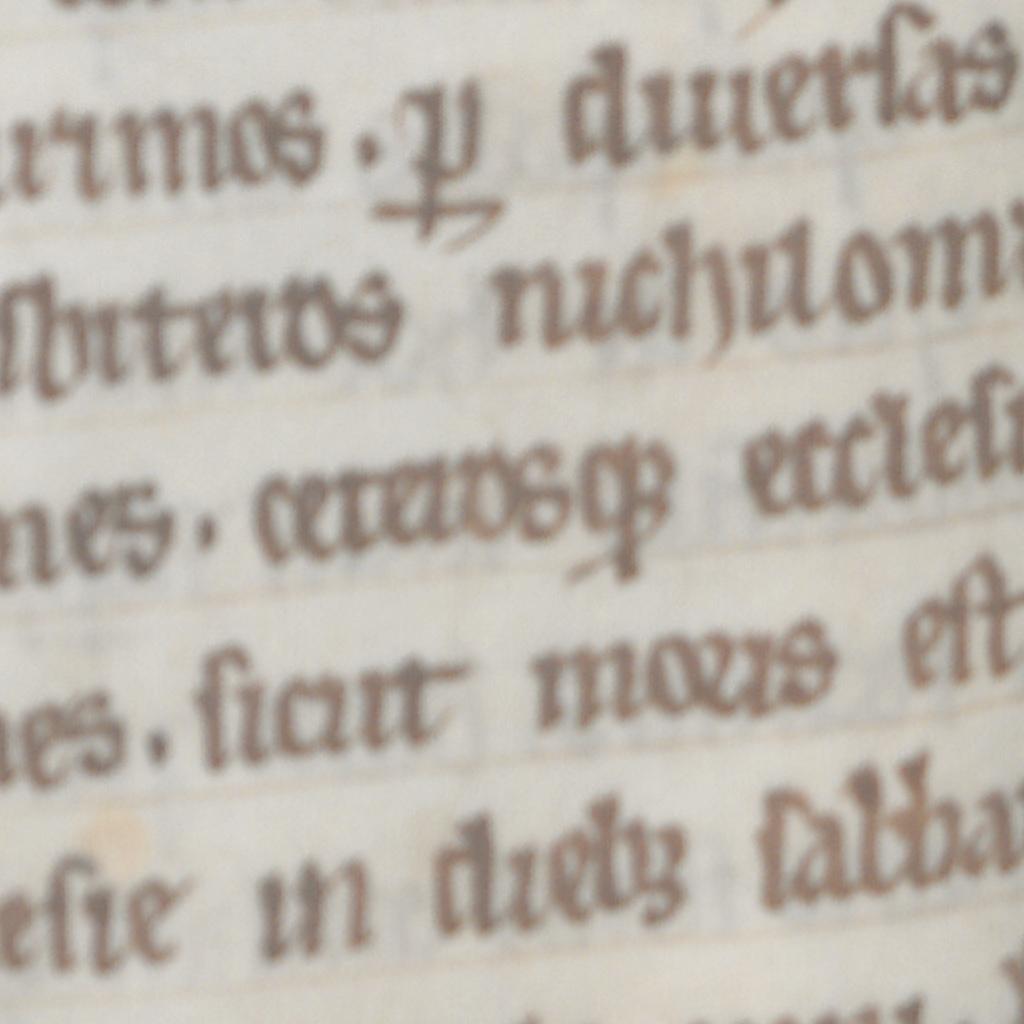 urimos . ꝑ diuersas
sbiteros nichilom
nes . ceterosqꝫ ecclesi
nes . sicut moris est
esie in diebꝫ sabba